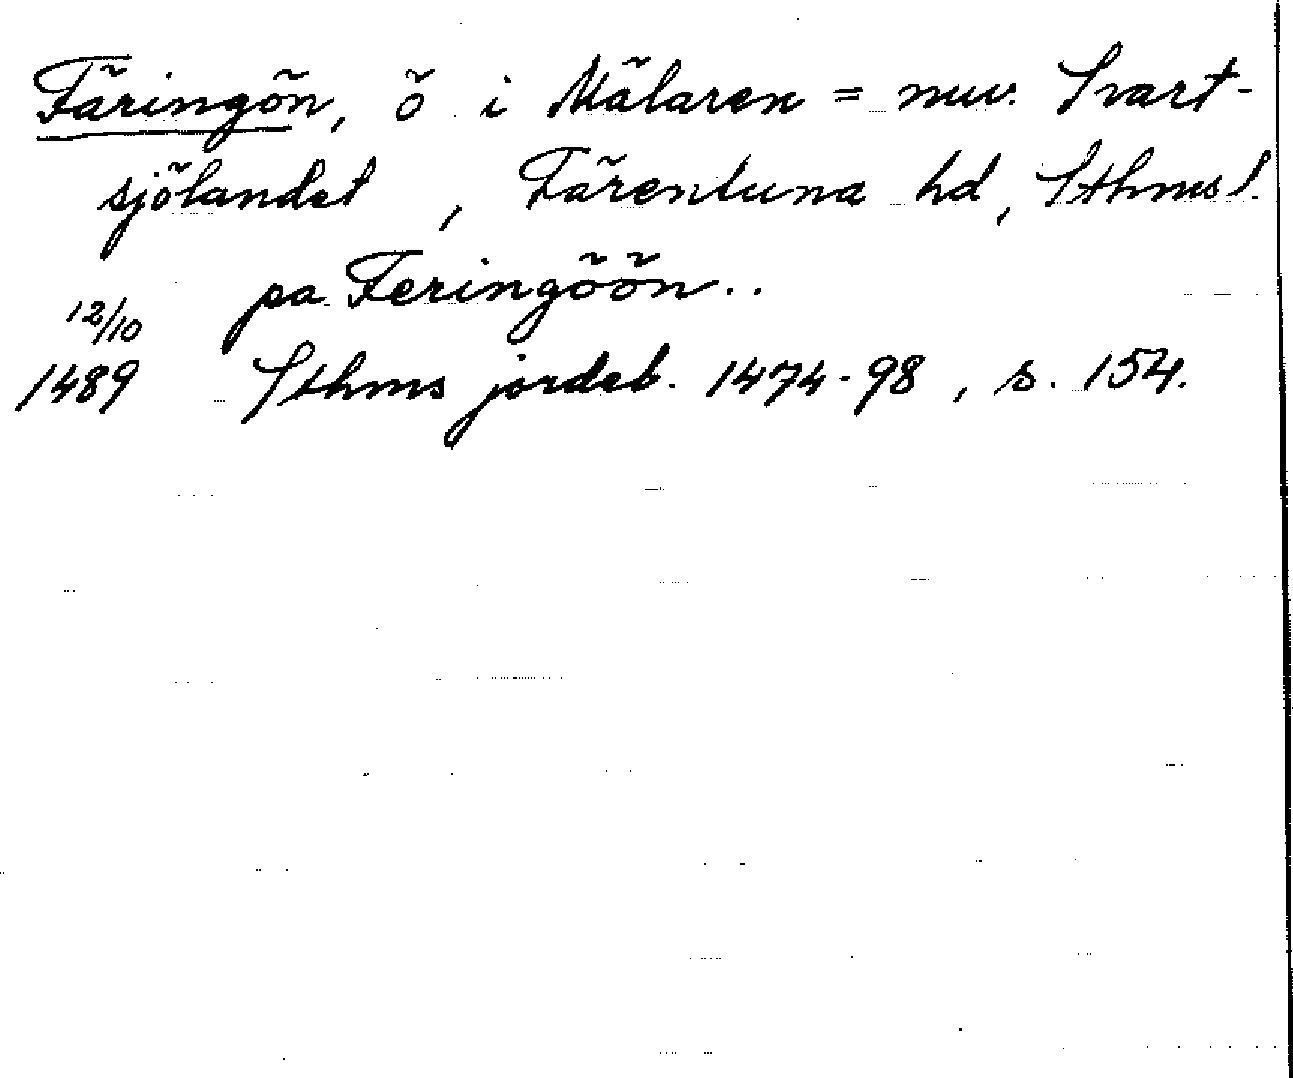 Färingön, ö i Mälaren = nuv. Svart-
sjölandet, Färentuna hd, Sthms l.
pa Feringöön..
12/10
1489 Sthms jordeb. 1474-98, s. 154.